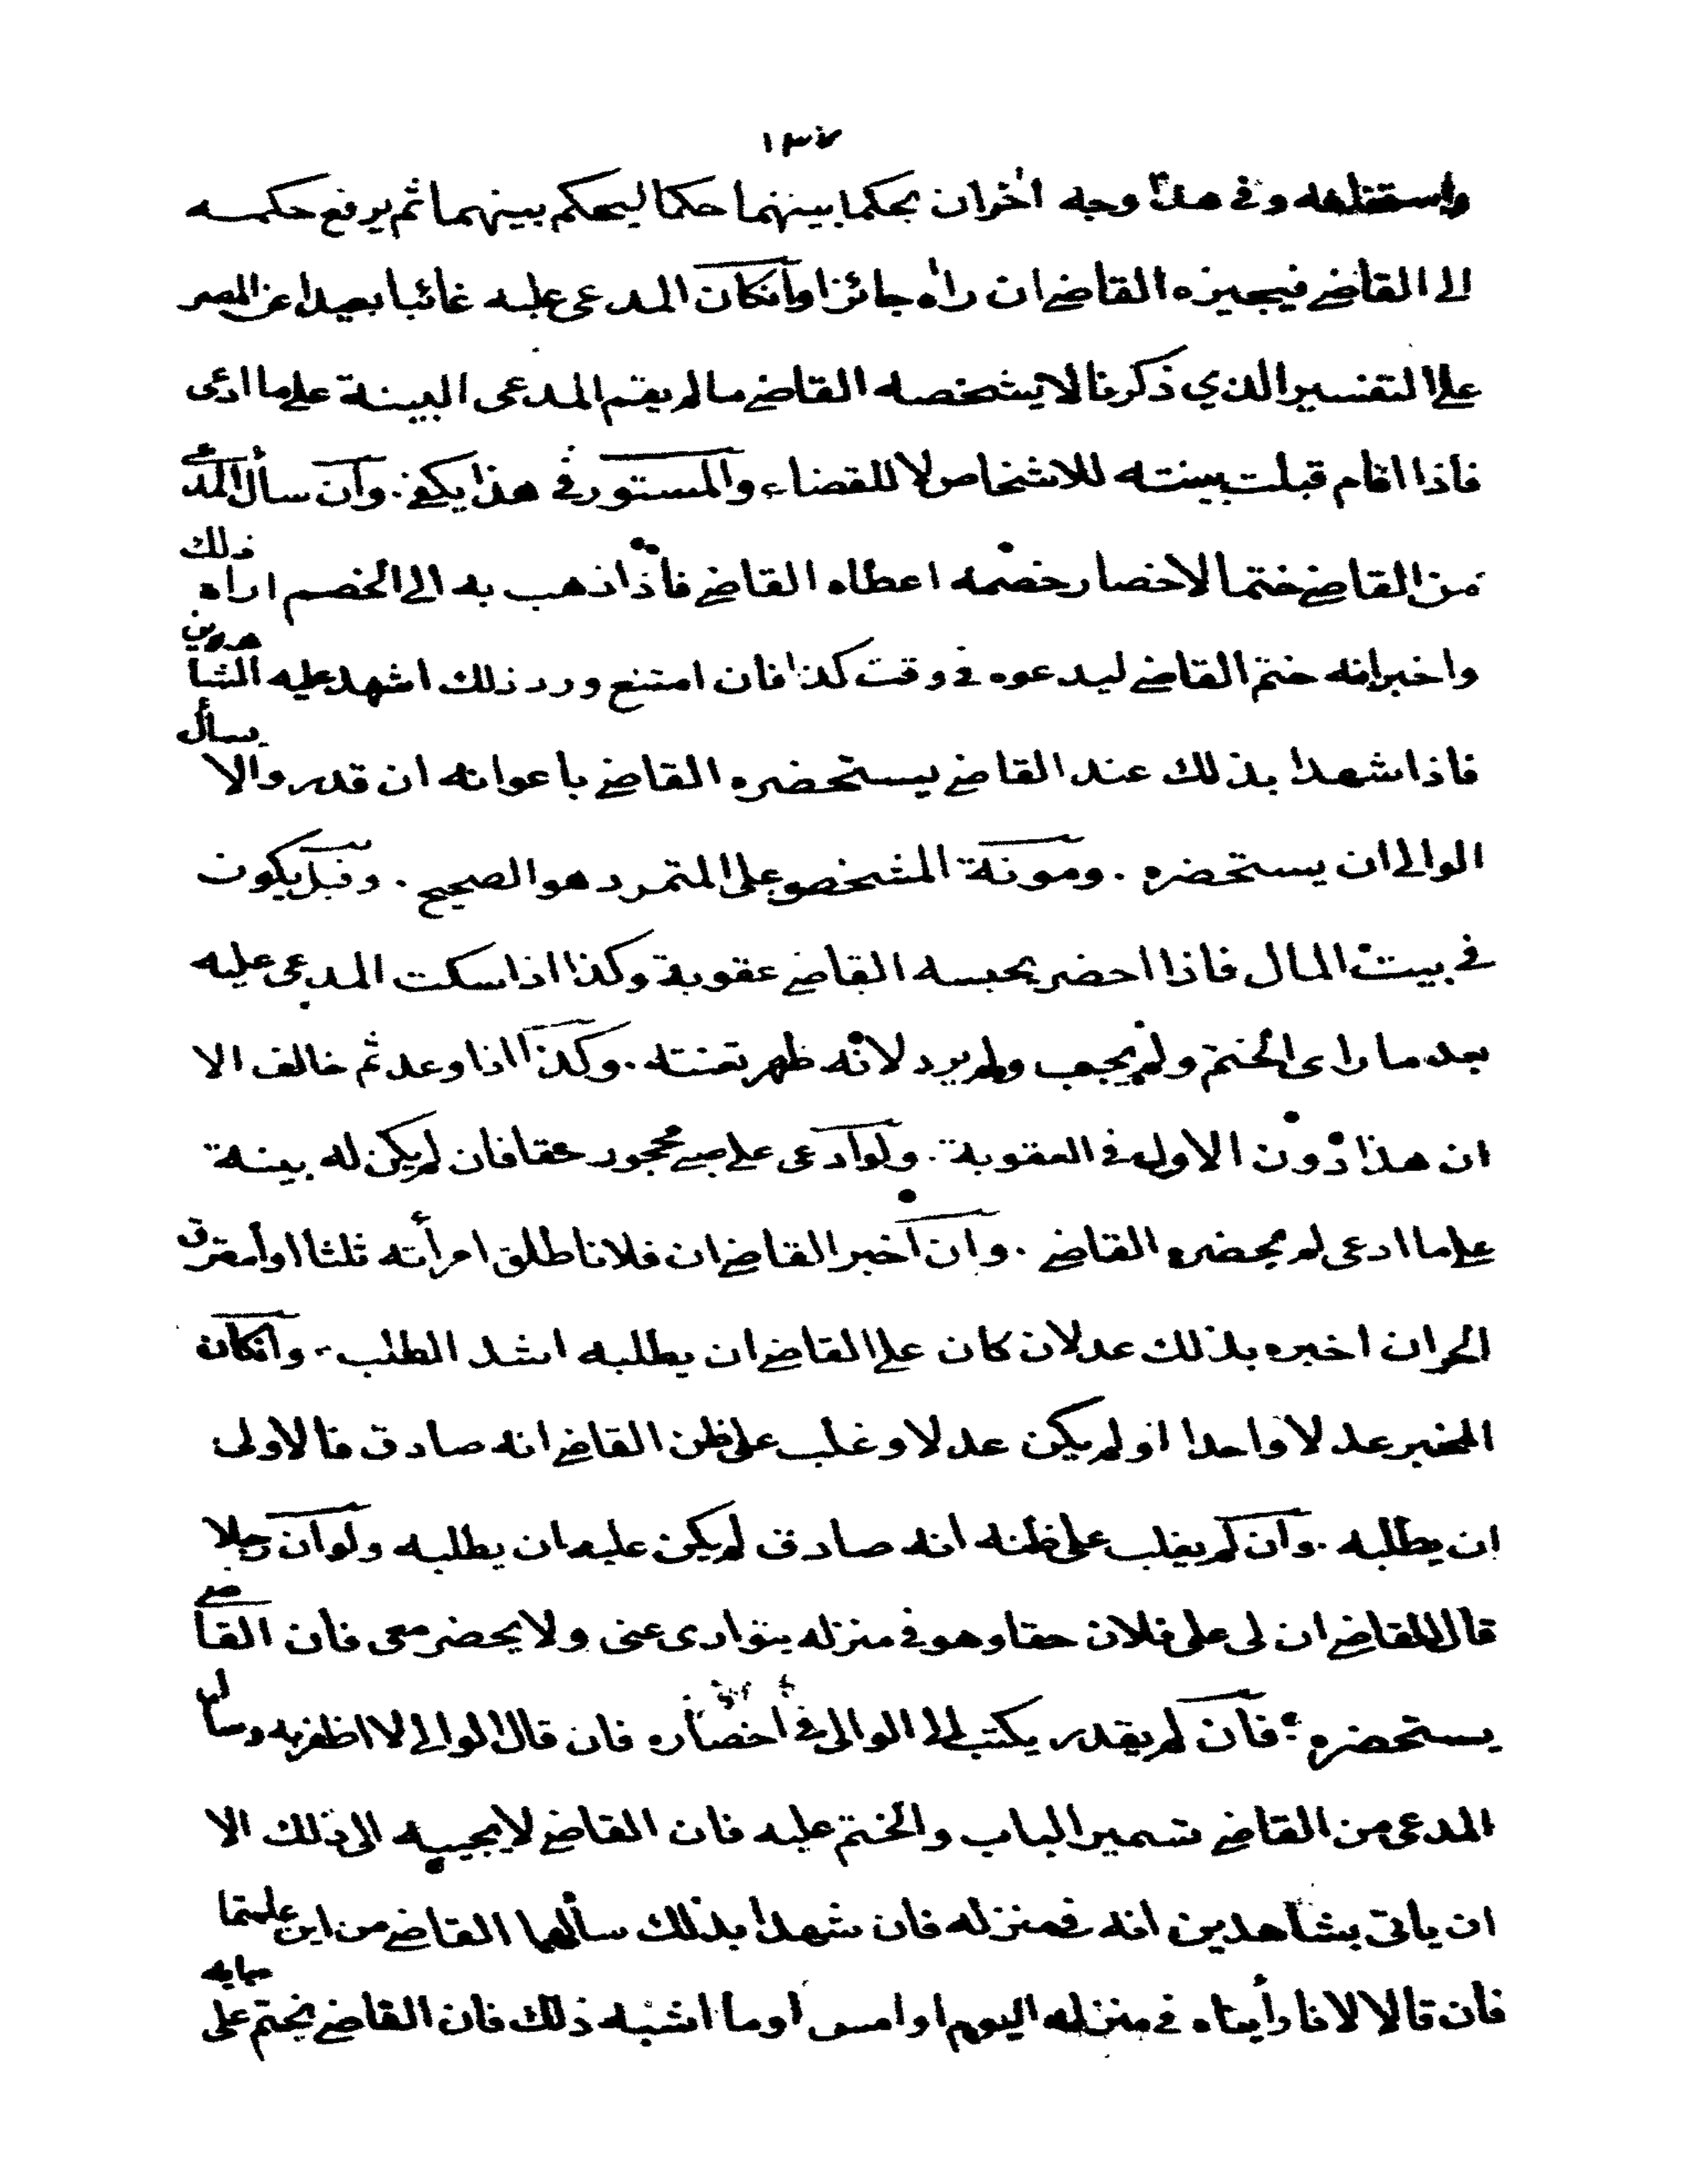 وفي هذا وجه اخر ان يحكما بينهما حكما ليحكم بينهما ثم يرفع حكمه
الى القاضي فيجيزه القاضي ان راه جائزا وانكان المدعى عليه غائبا بعيدا عن المصر
على التفسير الذي ذكرنا لا يشخصه القاضي ما لم يقم المدعى البينة على ما ادعى
فاذا اقام قبلت بينته للاشخاص لا للقضاء والمستور في هذا يكفي. وان سأل المدعي
من القاضي ختما لاحضار خصمه اعطاه القاضي فاذا ذهب به الى الخصم اراه ذلك
واخبر انه ختم القاضي ليدعوه في وقت كذا فان امتنع ورد ذلك اشهد عليه الشاهدين
فاذا شهدا بذلك عند القاضي يستحضره القاضي باعوانه ان قدر والا يسأل
الوالى ان يستحضره. ومونة المشخص على المتمرد هو الصحيح. وقيل يكون
في بيت المال فاذا احضر يحبسه القاضي عقوبة وكذا اذا سكت المدعى عليه
بعد ما راى الختم ولم يجب ولم يرد لانه ظهر تعنته. وكذا اذا وعد ثم خالف الا
ان هذا دون الاول في العقوبة. ولو ادعى على صبي محجور حقا فان لم يكن له بينة
على ما ادعى لم يحضره القاضي. وان اخبر القاضي ان فلانا طلق امرأته ثلثا او استرق
الحر ان اخبره بذلك عدلان كان على القاضي ان يطلبه اشد الطلب. وانكان
المخبر عدلا واحدا او لم يكن عدلا وغلب على ظن القاضي انه صادق فالاولى
ان يطلبه. وان لم يغلب على ظنه انه صادق لم يكن عليه ان يطلبه ولو ان رجلا
قال للقاضي ان لى على فلان حقا وهو في منزله يتوارى عنى ولا يحضر معى فان القاضي
يستحضره فان لم يقدر يكتب الى الوالى في احضاره فان قال الوالى لا اظفر به وسأل
المدعى من القاضي تسمير الباب والختم عليه فان القاضي لا يجيبه الى ذلك الا
ان ياتى بشاهدين انه في منزله فان شهدا بذلك سألهما القاضي من اين علمتما
فان قالا لانا رأيناه في منزله اليوم او امس او ما اشبه ذلك فان القاضي يختم على بابه